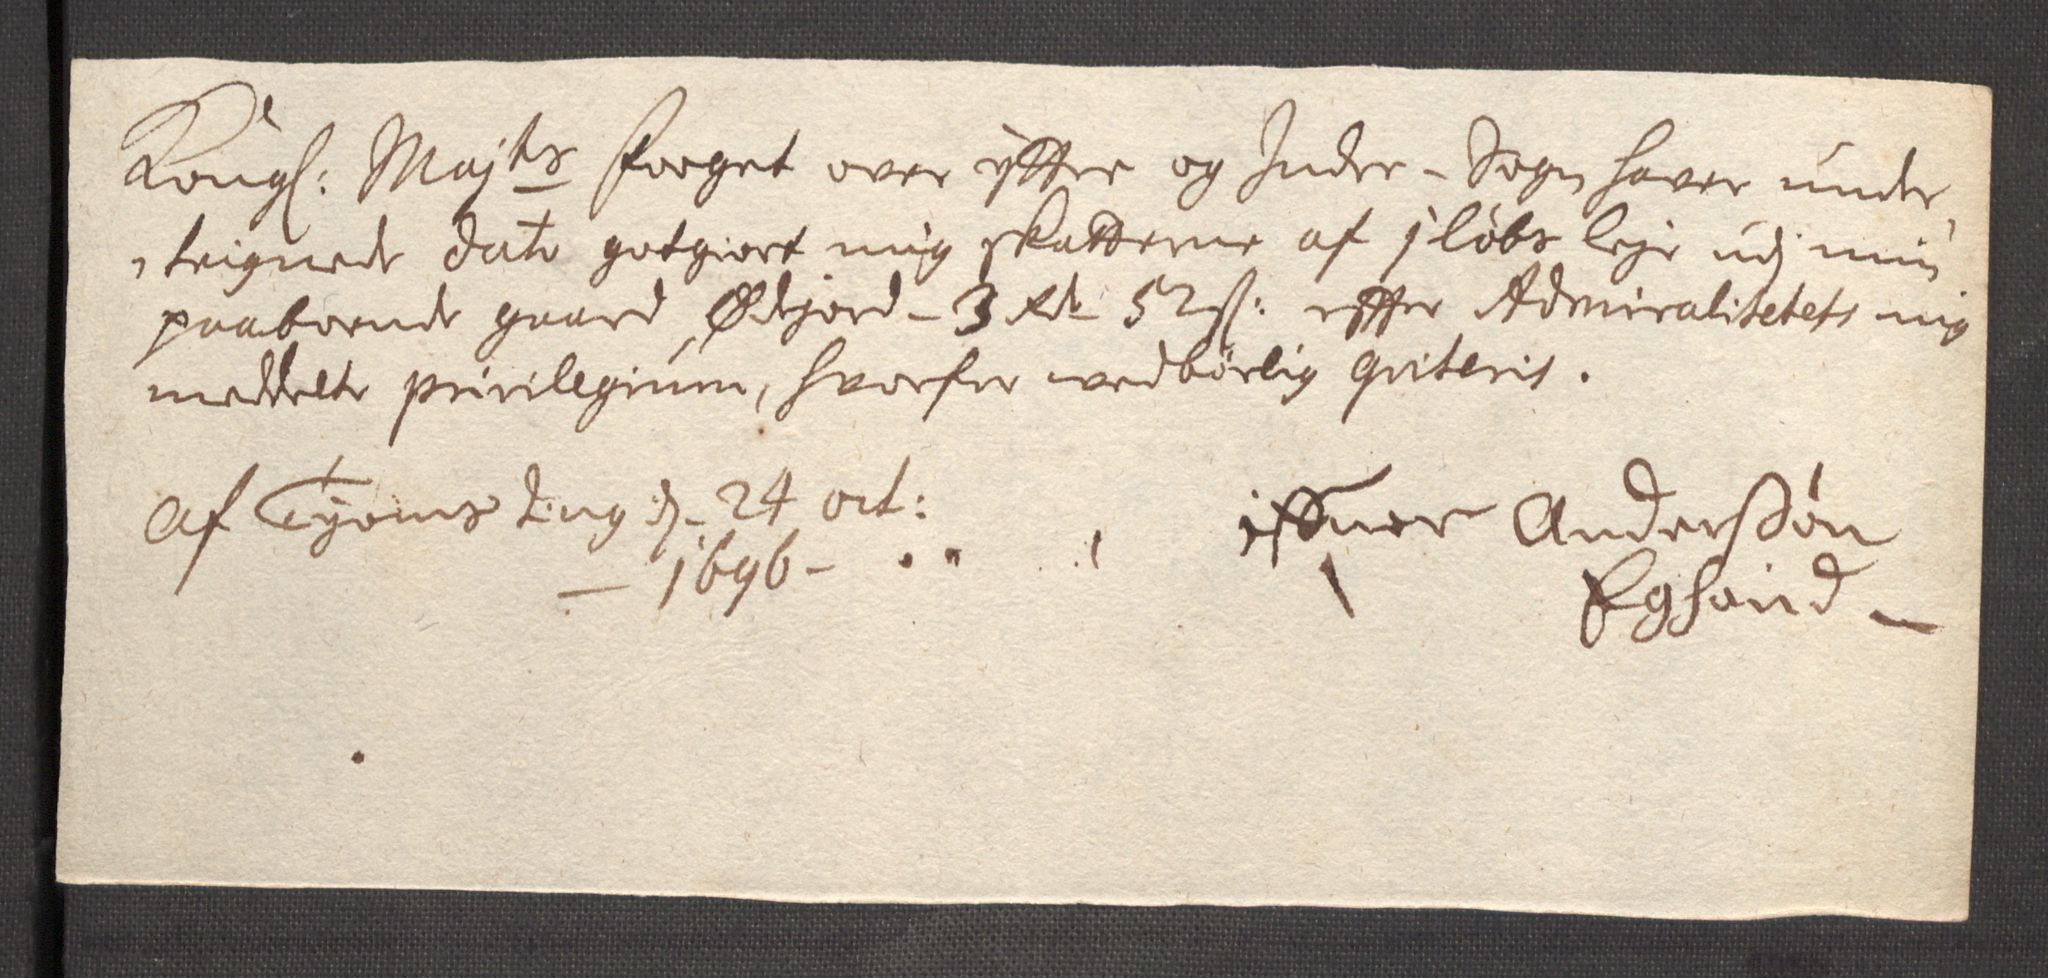 Kongl: Majts foeget over ytter og Inder-Sogn haver under,
,teignede dato gotgiort mig skatterne af j löbs leje udj min
paaboende gaard Ødejord - 3 Rdr 52 ß: efter Admiralitetets mig
meddelte privilegium, hvorfor vedbörlig qviteris.
af Tyoms Ting d. 24 oct:
1696 -
Anderssön